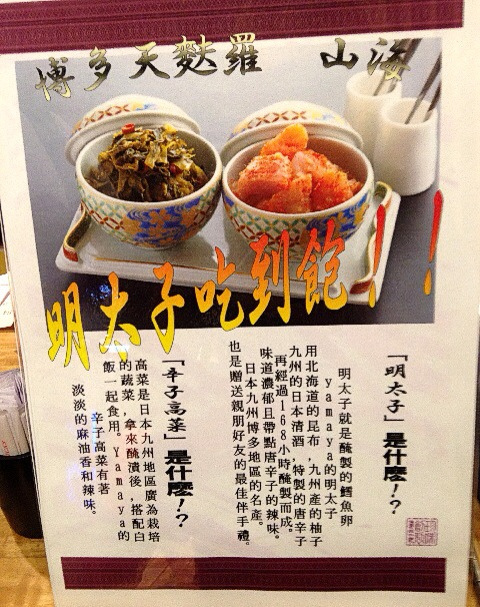 博多天麩羅 山海
明太子吃到飽！！
「明太子」是什麼！？
明太子就是醃製的鱈魚卵
yamaya的明太子
用北海道的昆布，九州產的柚子
九州的日本清酒，特製的唐辛子
再經過168小時醃製而成。
味道濃郁且帶點唐辛子的辣味。
日本九州博多地區的名產。
也是贈送親朋好友的最佳伴手禮。
「辛子高菜」是什麼！？
高菜是日本九州地區廣為栽培
的蔬菜，拿來醃漬後，搭配白
飯一起食用。yamaya的
辛子高菜有著
淡淡的麻油香和辣味。